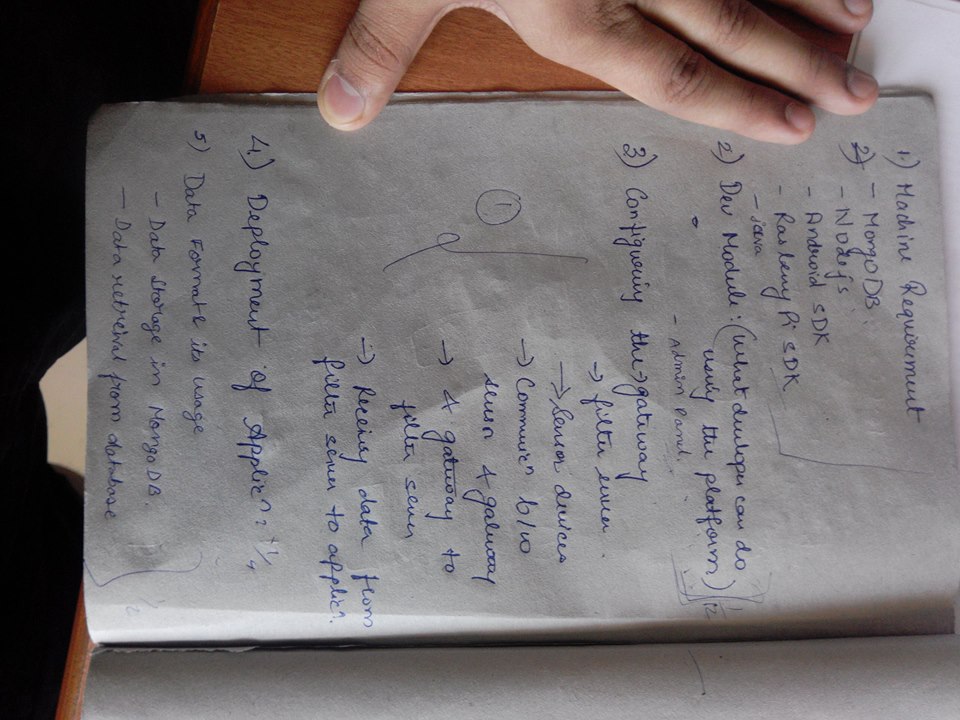 1.) Machine Requirement
2) - MongoDB.
- Nodejs.
- Android SDK
- Rasberry Pi SDK
- java
2) Dev Module: (What develuper can do
using the platform) 1/2
- Admin panel.
3) Configuring the → gateway
→ filter server.
→ Sensor devices
→ Communicn b/w
sensor & gateway
→ & gateway to
filter server
→ Receiving data from
filter server to applicn.
1
4.) Deployment of Applicn: 1/4
5) Data Format & its usage
- Data Storage in MongoDB.
- Data retreival from database
1/2